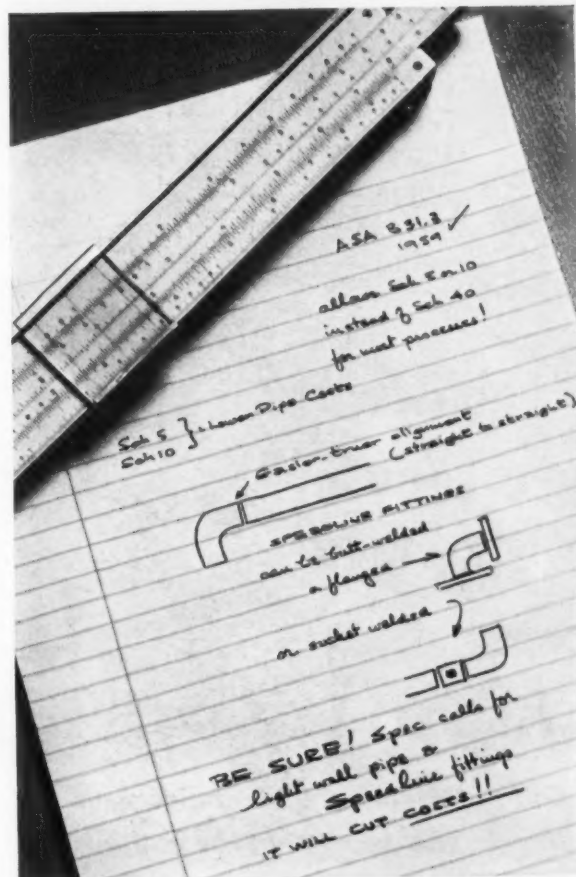 ASA B31.3
1959 ✓
allows Sch 5 or 10
instead of Sch 40
for most processes!
Sch 5
Sch 10 } = Lower Pipe Costs
Easier - truer alignment
(straight to straight)
SPEEDLINE FITTINGS
can be butt-welded
or flanged
or socket welded
BE SURE! Spec calls for
light wall pipe &
Speedline fittings
IT WILL CUT COSTS!!